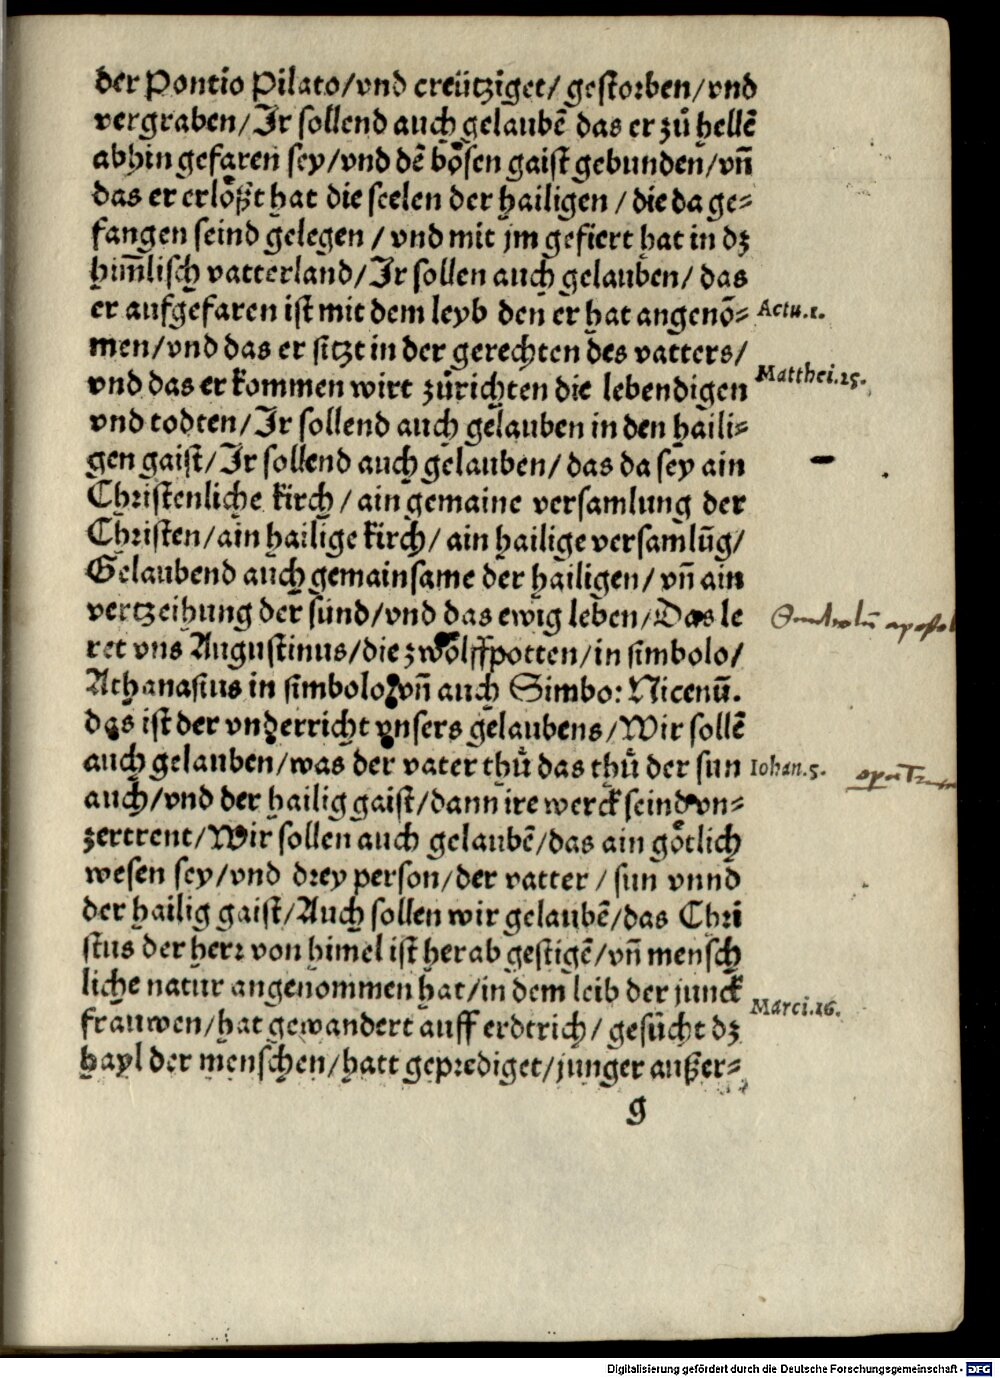 der Pontio Pilato/vnd creützigetꝛ/ gestorben/vnd
vergraben/Ir sollend auch gelaubē das er zů hellē
abhin gefaren sey/vnd dē bôsen gaist gebunden/vn̄
das er erlôßt hat die seelen der hailigen / die da ge⸗
fangen seind gelegen / vnd mit jm gefiert hat in dz
him̄lisch vatterland/Ir sollen auch gelauben/ das
er aufgefaren ist mit dem leyb den er hat angenō⸗ Actu.1.
men/vnd das er sitzt in der gerechten des vatters/
vnd das er kommen wirt zůrichten die lebendigen Matthei.25.
vnd todten/Ir sollend auch gelauben in den haili⸗
gen gaist/Ir sollend auch gelauben/ das da sey ain
Christenliche kirch / ain gemaine versamlung der
Christen/ain hailige kirch/ ain hailige versamlūg/
Gelaubend auch gemainsame der hailigen/ vn̄ ain
vertzeihung der sünd/vnd das ewig leben/Das le
ret vns Augustinus/die zwôlffpotten/in simbolo/
Athanasius in simbolo/vn̄ auch Simbo: Nicenū.
das ist der vnderricht vnsers gelaubens/Wir sollē
auch gelauben/was der vater thů das thů der sun Iohan.5.
auch/vnd der hailig gaist/dann ire werck seind vn⸗
zertrent/Wir sollen auch gelaubē/das ain gôtlich
wesen sey/vnd drey person/der vatter / sun vnnd
der hailig gaist/Auch sollen wir gelaubē/das Chri
stus der herr von himel ist herab gestigē/vn̄ mensch
liche natur angenommen hat/in dem leib der junck
frauwen/hat gewandert auff erdtrich/ gesůcht dz Marci.16.
hayl der menschen/hatt geprediget/junger außer⸗
g
Digitalisierung gefördert durch die Deutsche Forschungsgemeinschaft - DFG